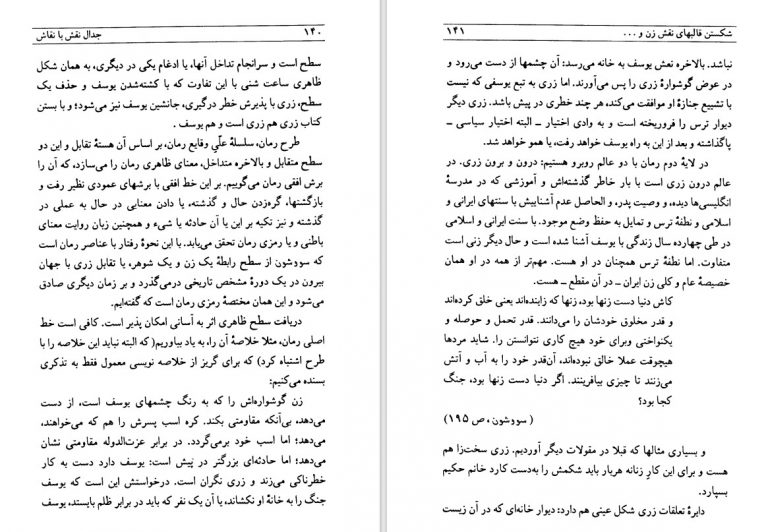 ۱۴۰
جدال نقش با نقاش
سطح است و سرانجام تداخل آنها، یا ادغام یکی در دیگری، به همان شکل
ظاهری ساعت شنی با این تفاوت که با کشته‌شدن یوسف و حذف یک
سطح، زری با پذیرش خطر درگیری، جانشین یوسف نیز می‌شود؛ و با بستن
کتاب زری هم زری است و هم یوسف .
طرح رمان، سلسلهٔ علّیِ وقایع رمان، بر اساس آن هستهٔ تقابل و این دو
سطح متقابل و بالاخره متداخل، معنای ظاهری رمان را می‌سازد، که آن را
برش افقی رمان می‌گوییم. بر این خط افقی با برشهای عمودی نظیر رفت و
بازگشتها، گره‌زدن حال و گذشته، یا دادن معنایی در حال به عملی در
گذشته و نیز تکیه بر این یا آن حادثه یا شیء و همچنین زبان روایت معنای
باطنی و یا رمزی رمان تحقق می‌یابد. با این نحوهٔ رفتار با عناصر رمان است
که سووشون از سطح رابطهٔ یک زن و یک شوهر، یا تقابل زری با جهان
بیرون در یک دورهٔ مشخص تاریخی درمی‌گذرد و بر زمان دیگری صادق
می‌شود و این همان مختصهٔ رمزی رمان است که گفته‌ایم.
دریافت سطح ظاهری اثر به آسانی امکان پذیر است. کافی است خط
اصلی رمان، مثلا خلاصهٔ آن را، به یاد بیاوریم( که البته نباید این خلاصه را با
طرح اشتباه کرد) که برای گریز از خلاصه نویسی معمول فقط به تذکری
بسنده می‌کنیم:
زن گوشواره‌اش را که به رنگ چشمهای یوسف است، از دست
می‌دهد، بی‌آنکه مقاومتی بکند. کره اسب پسرش را هم که می‌خواهند،
می‌دهد؛ اما اسب خود برمی‌گردد. در برابر عزت‌الدوله مقاومتی نشان
می‌دهد؛ اما حادثه‌ای بزرگتر در پیش است: یوسف دارد دست به کار
خطرناکی می‌زند و زری نگران است. درخواستش این است که یوسف
جنگ را به خانهٔ او نکشاند، یا آن یک نفر که باید در برابر ظلم بایستد، یوسف
شکستن قالبهای نقش زن و ...
۱۴۱
نباشد. بالاخره نعش یوسف به خانه می‌رسد: آن چشمها از دست می‌رود و
در عوض گوشوارهٔ زری را پس می‌آورند. اما زری به تبع یوسفی که نیست
با تشییع جنازهٔ او موافقت می‌کند، هر چند خطری در پیش باشد. زری دیگر
دیوار ترس را فروریخته است و به وادی اختیار ــ البته اختیار سیاسی ــ
پاگذاشته و بعد از این به راه یوسف خواهد رفت، یا همو خواهد شد.
در لایهٔ دوم رمان با دو عالم روبرو هستیم: درون و برون زری. در
عالم درون زری است با بار خاطر گذشته‌اش و آموزشی که در مدرسهٔ
انگلیسی‌ها دیده، و وصیت پدر، و الحاصل عدم آشناییش با سنتهای ایرانی و
اسلامی و نطفهٔ ترس و تمایل به حفظ وضع موجود. با سنت ایرانی و اسلامی
در طی چهارده سال زندگی با یوسف آشنا شده است و حال دیگر زنی است
متفاوت. اما نطفهٔ ترس همچنان در او هست. مهم‌تر از همه در او همان
خصیصهٔ عام و کلی زن ایران ــ در آن مقطع ــ هست.
کاش دنیا دست زنها بود، زنها که زاینده‌اند یعنی خلق کرده‌اند
و قدر مخلوق خودشان را می‌دانند. قدر تحمل و حوصله و
یکنواختی وبرای خود هیچ کاری نتوانستن را. شاید مردها
هیچوقت عملا خالق نبوده‌اند، آن‌قدر خود را به آب و آتش
می‌زنند تا چیزی بیافرینند. اگر دنیا دست زنها بود، جنگ
کجا بود؟
( سووشون ، ص ۱۹۵)
و بسیاری مثالها که قبلا در مقولات دیگر آوردیم. زری سخت‌زا هم
هست و برای این کارِ زنانه هربار باید شکمش را به‌دست کارد خانم حکیم
بسپارد.
دایرهٔ تعلقات زری شکل عینی هم دارد: دیوار خانه‌ای که در آن زیست